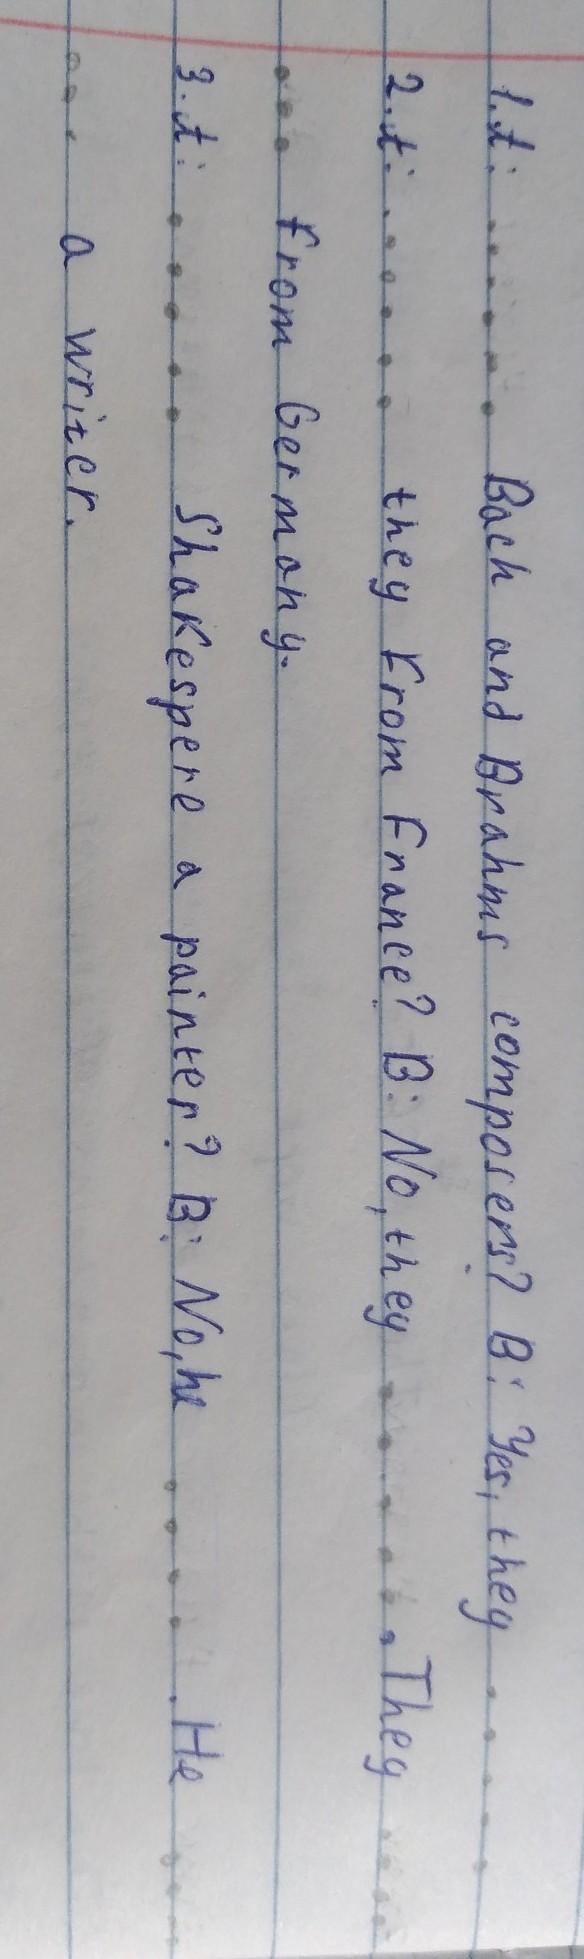 1. A: ..... Bach and Brahms composers? B: Yes, they ....
2. A: ..... they from France? B: No, they ..... They ...
... from Germany.
3. A: ..... Shakespere a painter? B: No, he ..... He ...
... a writer.